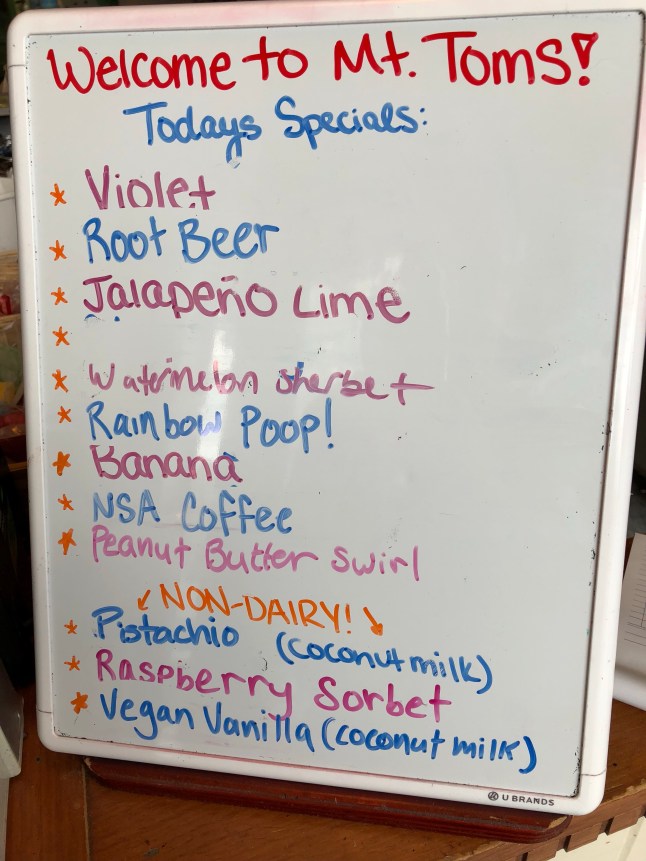 Welcome to Mt. Toms!
Todays Specials:
* Violet
* Root Beer
* Jalapeño Lime
*
* Watermelon Sherbet
* Rainbow Poop!
* Banana
* NSA Coffee
* Peanut Butter Swirl
↙ NON-DAIRY! ↘
* Pistachio (coconut milk)
* Raspberry Sorbet
* Vegan Vanilla (coconut milk)
U BRANDS